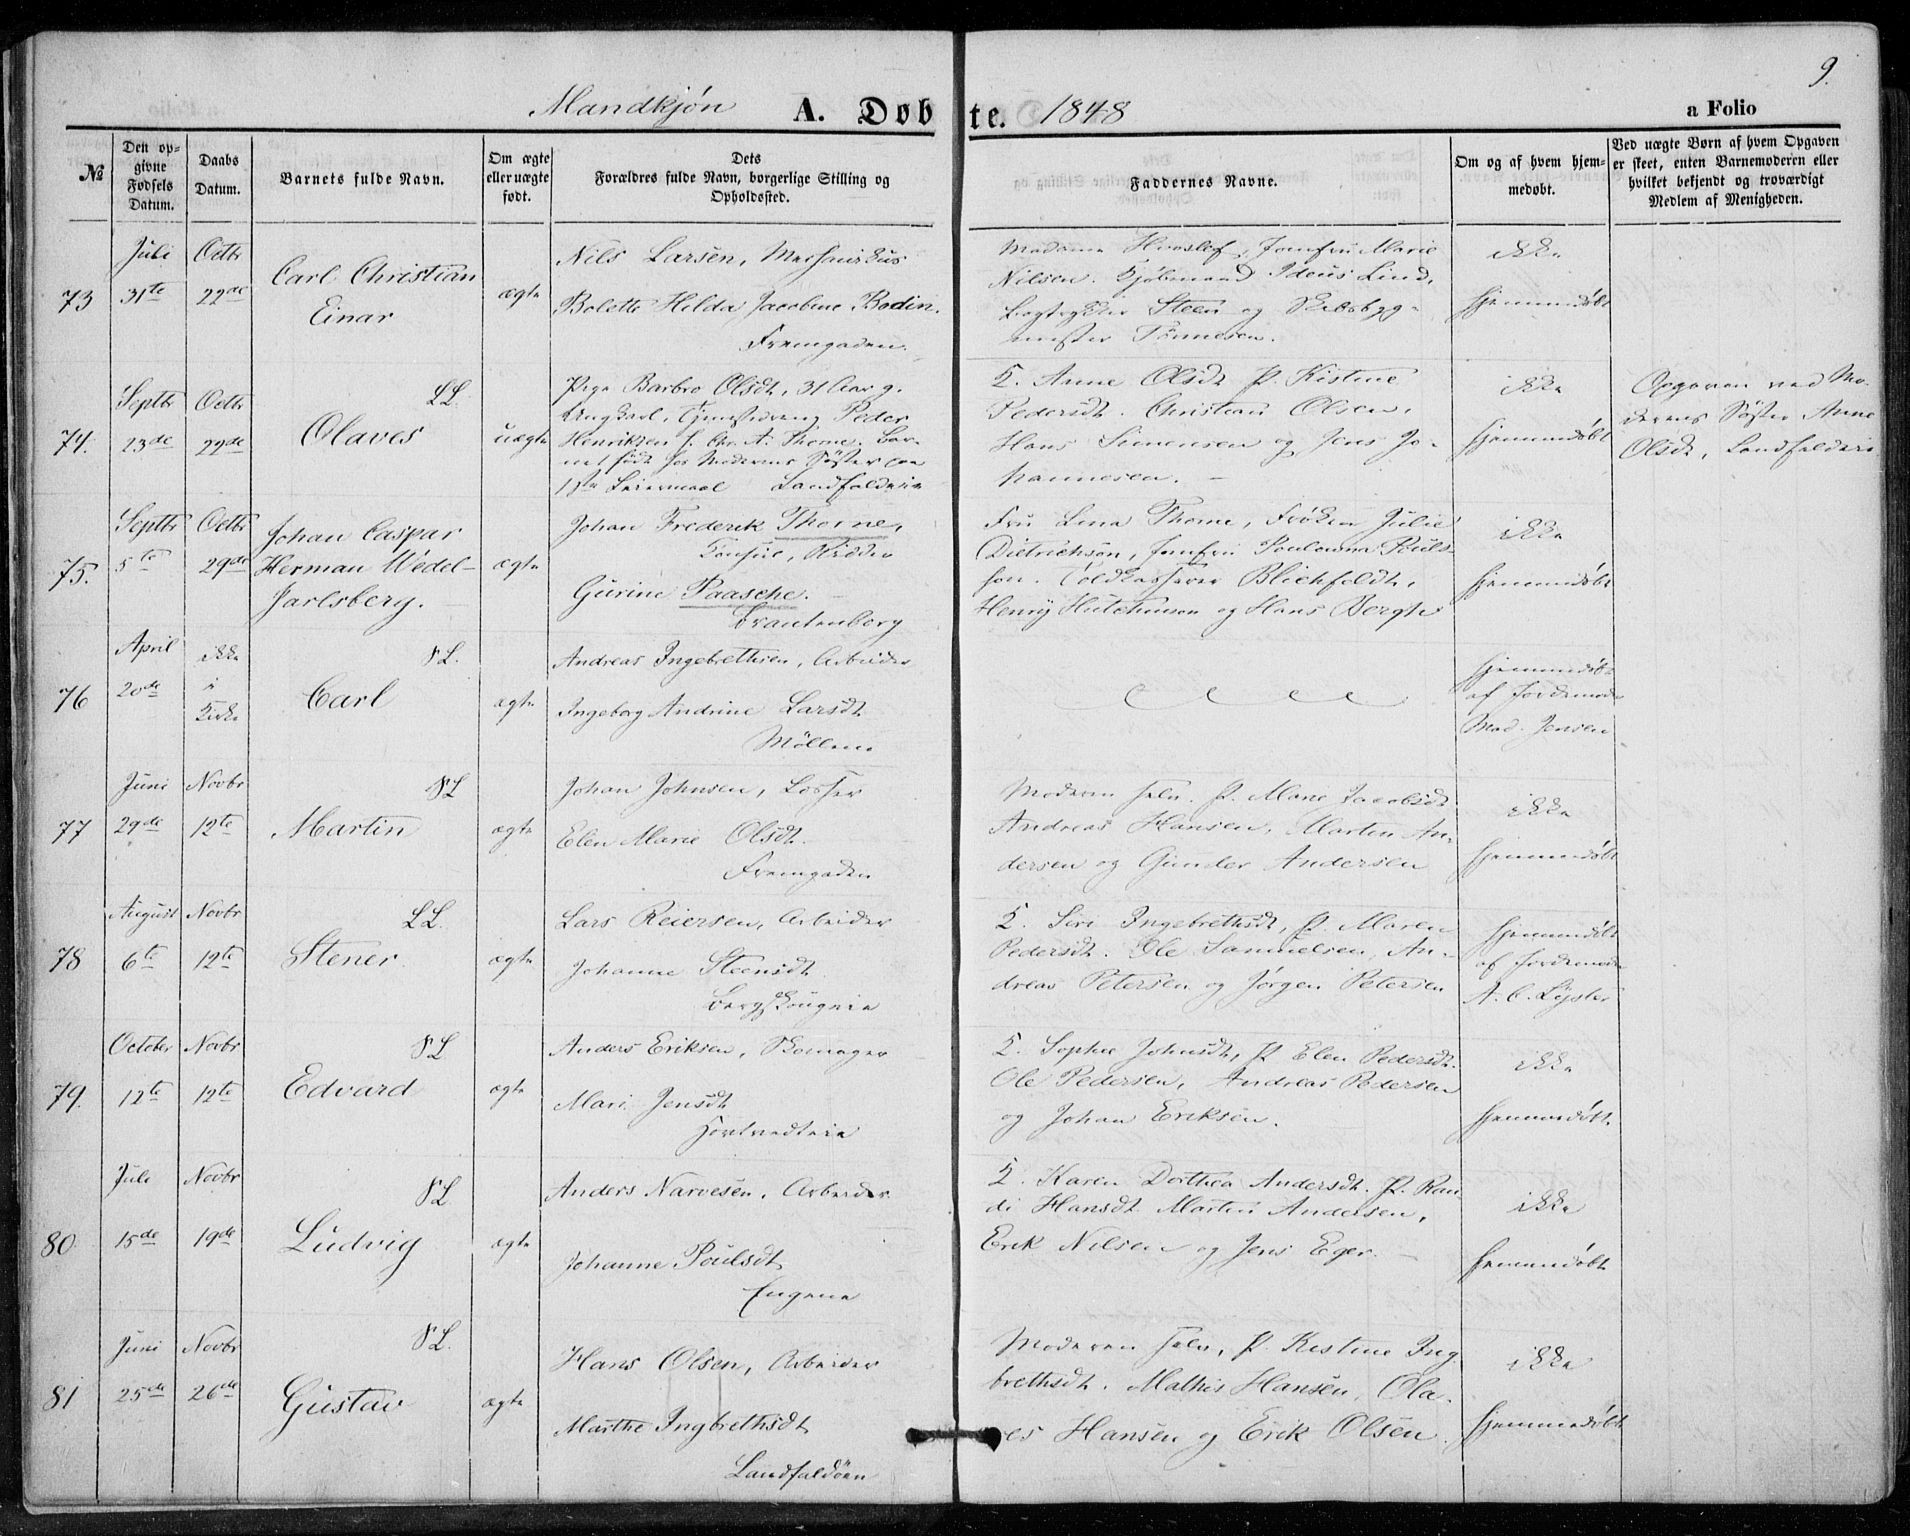 Mandkjøn A. Døbte. 1848 a Folio 9.
№
Den opgivne Fødsels Datum.
Daabs Datum.
Barnets fulde Navn.
Om ægte eller uægte født.
Dets Forældres fulde Navn, borgerlige Stilling og Opholdssted.
Faddernes Navne.
Om og af hvem hjemmedøbt.
Ved uægte Børn af hvem Opgaven er skeet, enten Barnemoderen eller hvilket bekjendt og troværdigt Medlem af Menigheden.
73
Juli 31te
Octbr 22de
Carl Christian
Einar
ægte
Nils Larsen,
Bolette Hilda Jacobine Bodin.
Fremgaden.
Madame Hvoslef, Jomfru Marie
Nilsen. Kjøbmand Lind,
Bogtrykker Steen og Skibsbyg-
mester Tønnesen.
ikke
hjemmedøbt
74.
Septbr 23de
Octbr 22de
LL
Olaves
uægte
Pige Barbro Olsdt, 31 Aar g.
Ungkarl, Tjenestedreng Peder
Henriksen f. Chr. A. Thorne. Bar-
net født hos Moderens Søster
1ste Leiermaal Landfaldeie
K. Anne Olsdt P. Kistine
Pedersdt. Christian Olsen,
Hans Simensen og Jens Jo-
hannesen.
ikke
hjemmedøbt
Opgaven ved Mo-
derens Søster Anne
Olsdt, Landfaldeie
75.
Septbr 5te
Octbr 29de
Johan Caspar
Herman Wedel-
Jarlsberg.
ægte
Johan Frederik Thorne,
Konsul, Ridder
Gurine Paasche.
Frantenborg
Fru Lina Thorne, Frøken Julie
Dietrichson, Jomfru Poulenna Pouls-
son. Toldkasserer Blichfeldt,
Henrÿ Hutchinson og Hans Bergh
ikke
hjemmedøbt
76
April 20de
ikke
i
Kirke
SL.
Carl
ægte
Andreas Ingebrethsen, Arbeider
Ingeborg Andrine Larsdt
Møllene
hjemmedøbt
af Jordemoder
Mad. Jensen
77
Juni 29de
Novbr 12te
SL
Martin
ægte
Johan Johnsen, Losser
Elen Marie Olsdt.
Fremgaden
Moderen selv. P. Marie Jacobsdt
Andreas Hansen, Martin An-
dersen og Gunder Andersen
ikke
hjemmedøbt
78
August 6te
Novbr 12te
LL.
Stener
ægte
Lars Reiersen, Arbeider
Johanne Steensdt
Bergskougeie
K. Siri Ingebrethsdt, P. Maren
Pedersdt. Ole Samuelsen, An-
dreas Petersen og Jørgen Petersen
hjemmedøbt
af Jordemoder
A. C. Lÿster
79.
October 12te
Novbr 12te
SL
Edvard
ægte
Anders Eriksen, Skomager
Mari Jensdt
K. Sophie Johnsdt, P Elen Pedersdt.
Ole Pedersen, Andreas Pedersen
og Johan Eriksen.
ikke
hjemmedøbt
80
Juli 15de
Novbr 19de
SL
Ludvig
ægte
Anders Narvesen, Arbeider
Johanne Poulsdt
Engene
K. Karen Dorthea Andersdt. P. Ran-
di Hansdt Martin Andersen,
Erik Nilsen og Jens Eger.
ikke
hjemmedøbt
81
Juni 25de
Novbr 26de
SL.
Gustav
ægte
Hans Olsen, Arbeider
Marthe Ingbrethsdt
Landfaldøen
Moderen selv, P. Kistine Ing-
brethsdt. Mathis Hansen, Ola-
ves Hansen og Erik Olsen.
ikke
hjemmedøbt